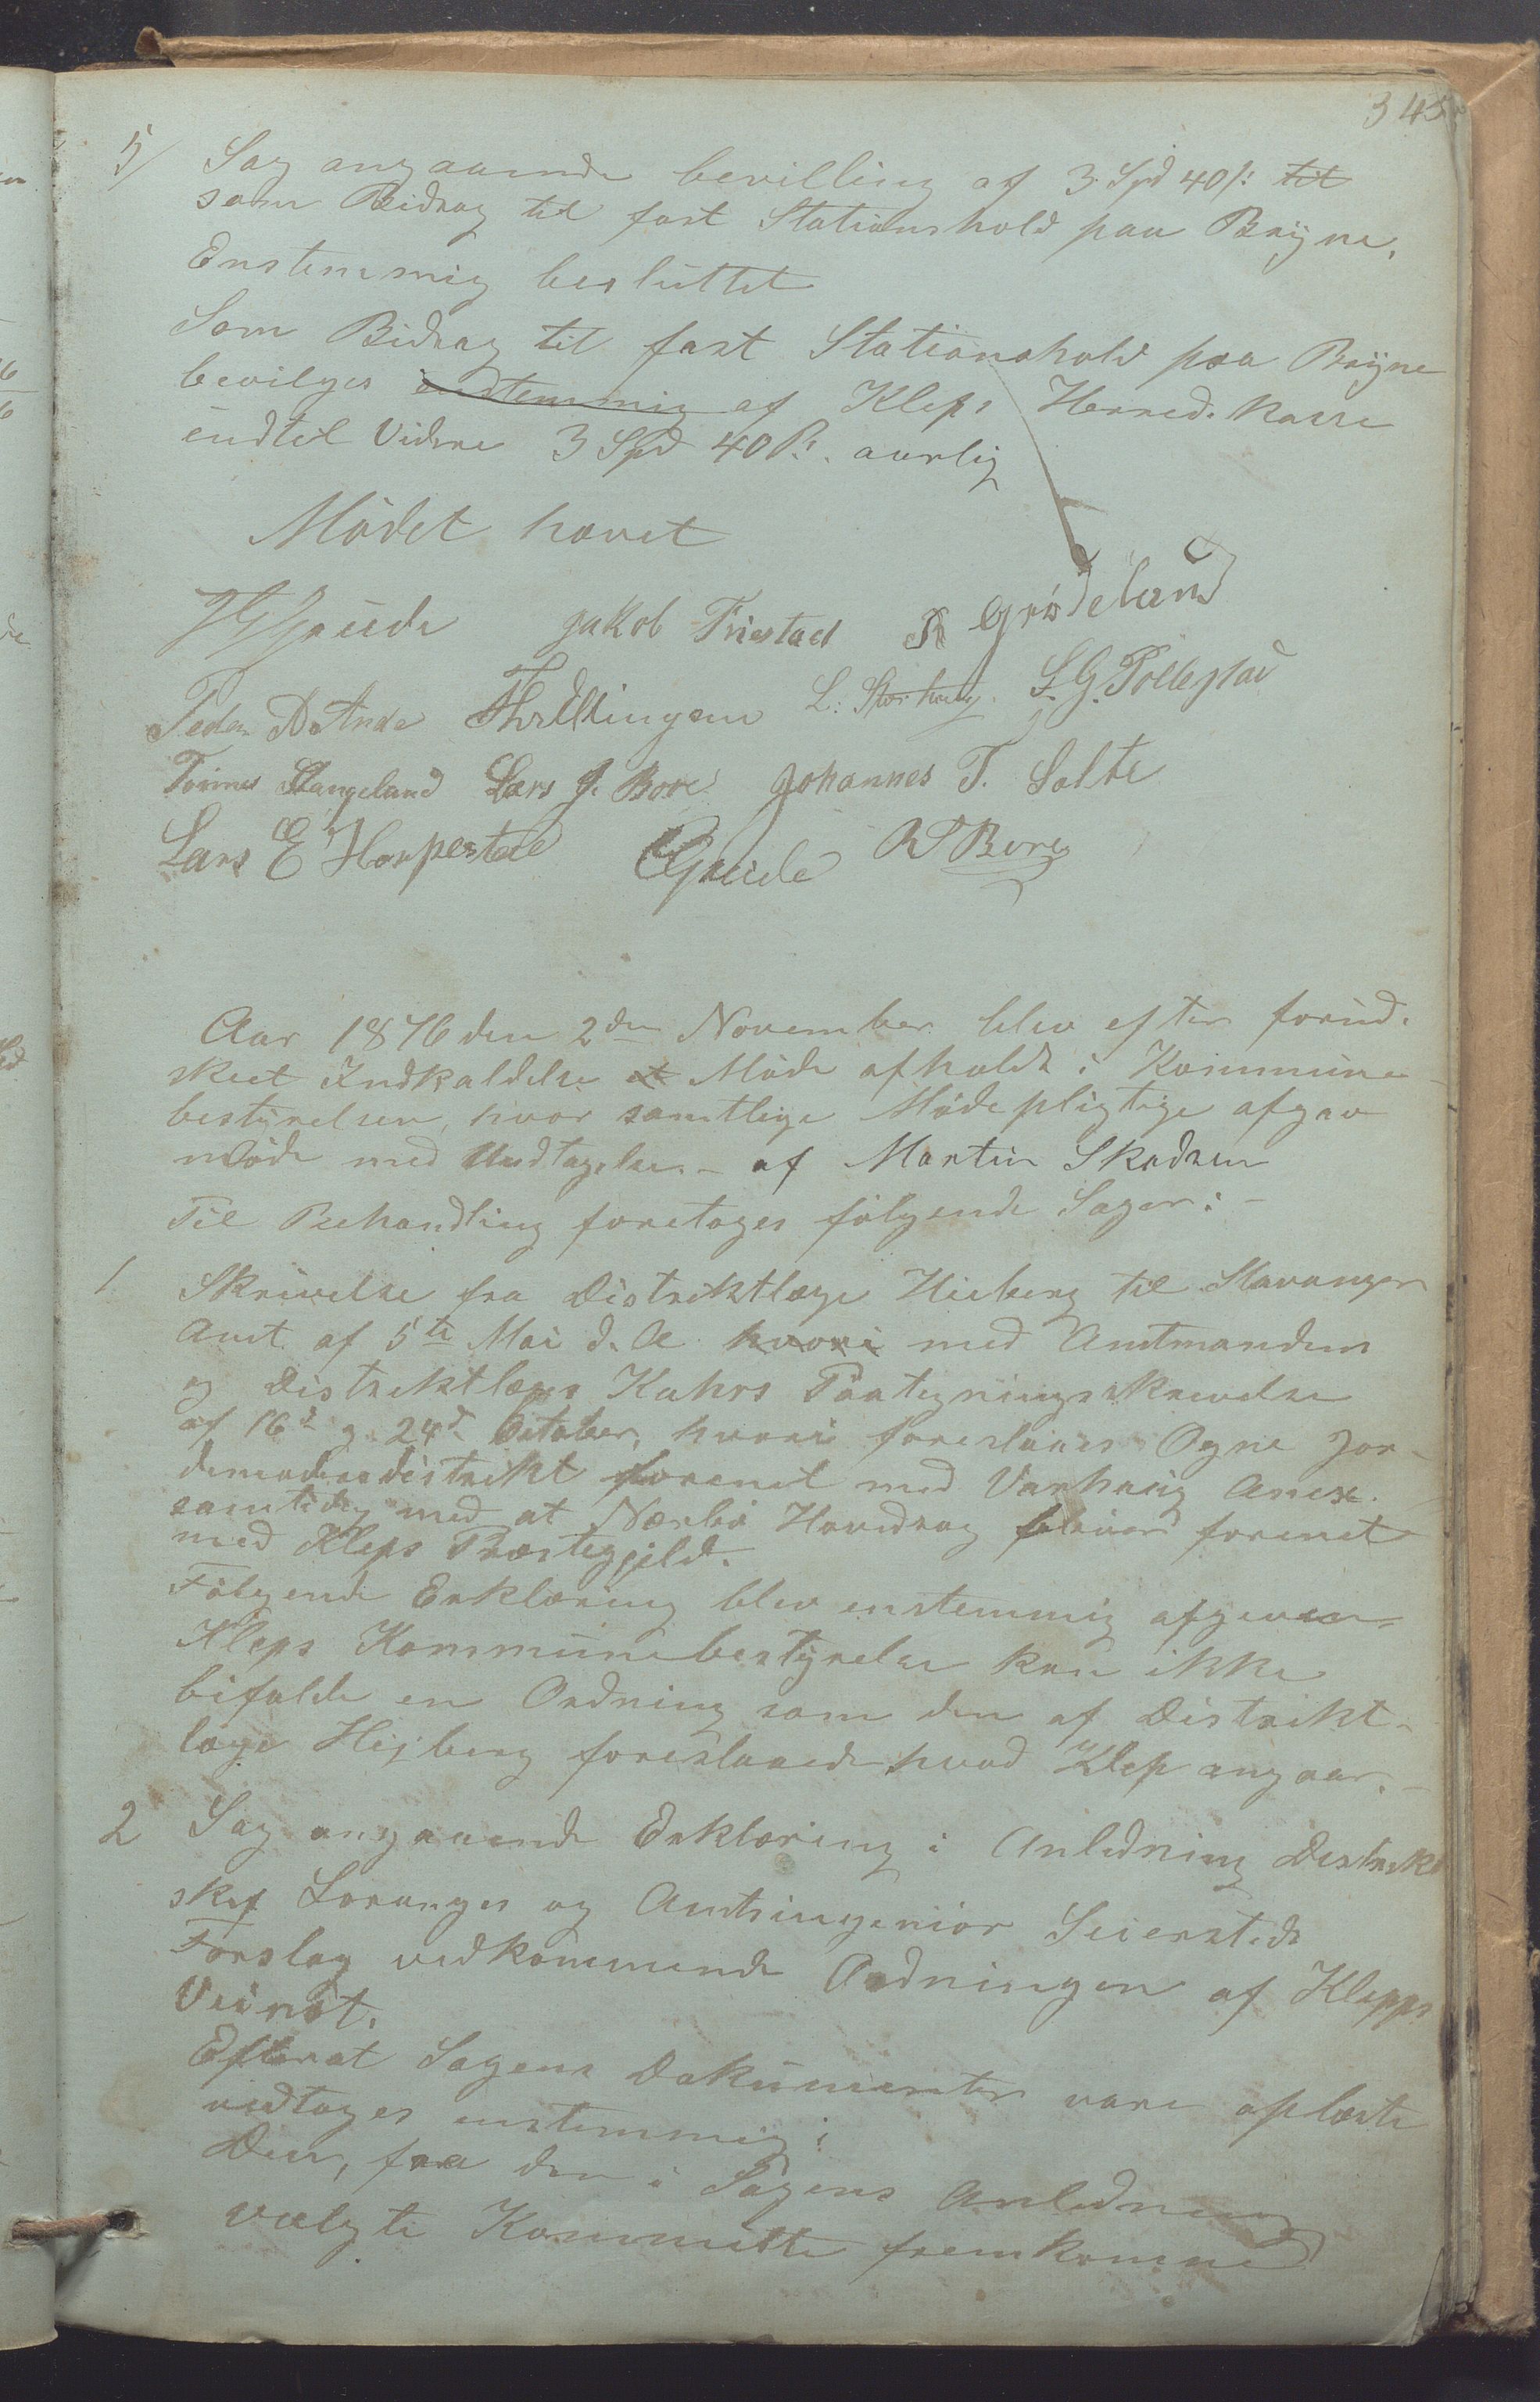 345
5/ Sag angaaende bevilling af 3 Spd 40 s: til
som Bidrag til fast Stationshold paa Bryne.
Enstemmig besluttet
Som Bidrag til fast Stationshold paa Bryne
bevilges enstemmig af Kleps Herreds Kasse
indtil Videre 3 Spd 40 s. aarlig
Mödet hævet
Grude Jakob Friestad Grödeland
Peder Anda L. Storhaug S. G. Pollestad
Tönnes Stangeland Lars J. Bore Johannes T. Salte
Lars E Horpestad Grude Bore
Aar 1876 den 2den November blev efter forud.
skeet Indkaldelse et Möde afholdt i Kommune
bestyrelsen, hvor samtlige Mödepligtige afgav
möde med Undtagelse - af Martin Skadsem
Til Behandling foretages fölgende Sager: -
1 Skrivelse fra Distriktlæge Hieberg til Stavanger
Amt. af 5te Mai d. A hvori med Amtmandens
og Distriktlæges Kahrs Paategningsskrivelse
af 16de og 24de October, hvori foreslaaes Ogne Jor-
demoderdistrikt forenet med Varhaug Anex.
samtidig med at Nærbö Hovedsog bliver forenet
med Kleps Præstegjeld.
Fölgende Erklæring blev enstemmig afgiven
Kleps Kommunebestyrelse kan ikke
bifalde en Ordning som den af Distrikt-
læge Hejberg foreslaaede hvad Klep angaar. -
2 Sag angaaende Erklæring i Anledning Distrikt
skof Loranges og Amtsingeniör Seiersteds
Forslag vedkommende Ordningen af Klepps
Veinæt.
Efterat Sagens Dokumenter vare oplæste
vedtoges enstemmig:
Den, fra den i Sagens Anledning
valgte Kommitte fremkomne